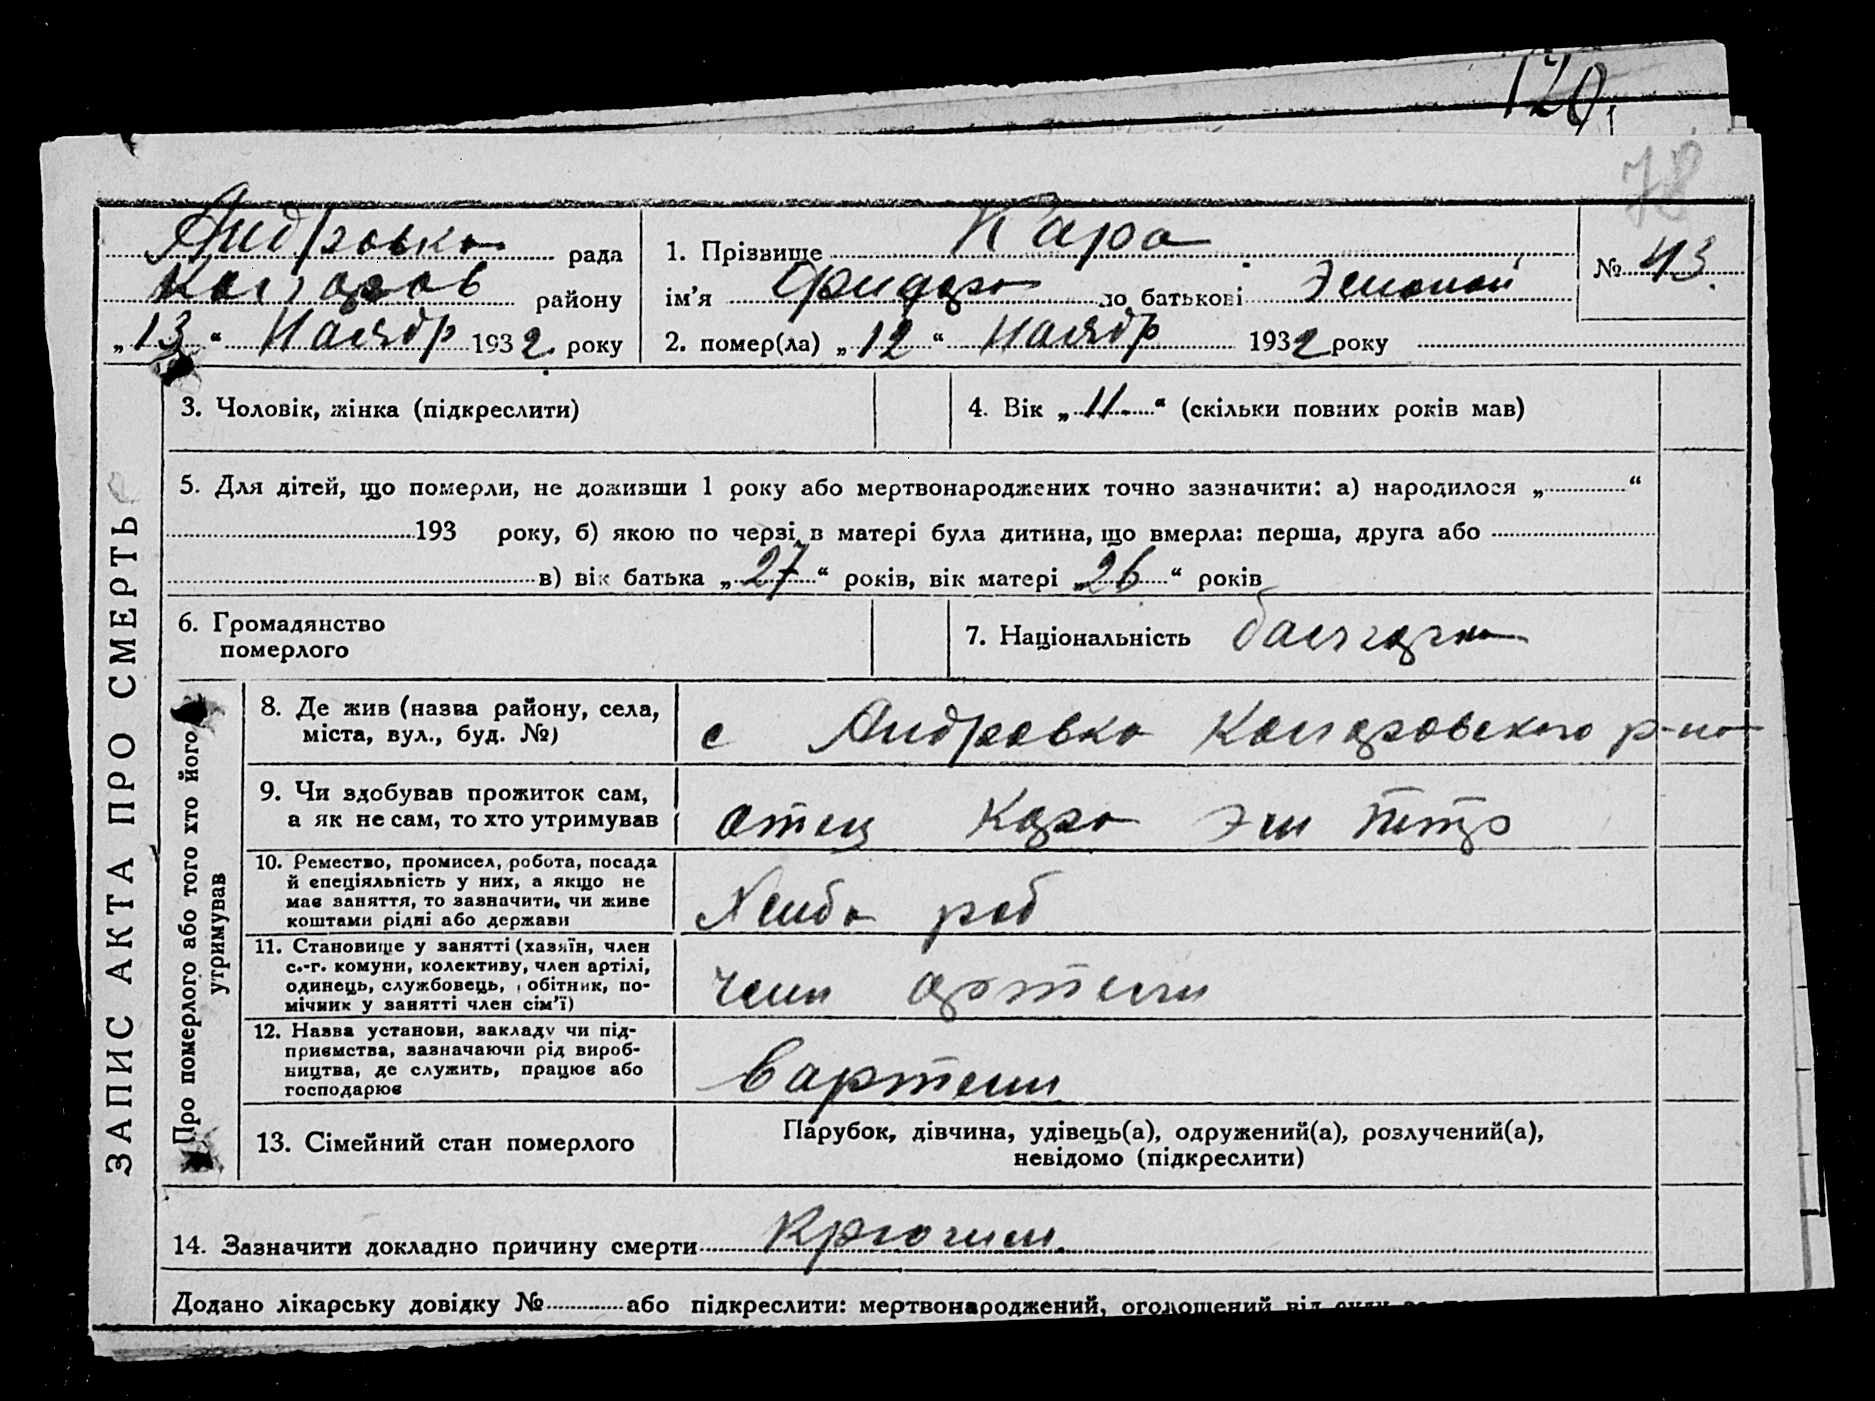 120.
78
Андровка рада
районy
„13“ Наябр 1932. року
1. Прізвище Кара
ім’я по батькові
№ 43.
2. помер(ла) „12“ Наябр 1932 року
3. Чоловік, жінка (підкреслити)
4. Вік „11.“ (скільки повних років мав)
5. Для дітей, що померли, не доживши 1 року або мертвонароджених точно зазначити: а) народилося „ “
193 року, б) якою по черзі в матері була дитина, що вмерла: перша, друга або
в) вік батька „27“ років, вік матері „26“ років
6. Громадянство
померлого
7. Національність
ЗАПИС АКТА ПРО СМЕРТЬ
Про померлого або того хто його
утримував
8. Де жив (назва району, села,
міста, вул., буд. №)
с Андровка р-на
9. Чи здобував прожиток сам,
а як не сам, то хто утримував
отец Кара
10. Ремество, промисел, робота, посада
й спеціяльність у них, а якщо не
має заняття, то зазначити, чи живе
коштами рідні або держави
Хлиба роб
11. Становище у занятті (хазяїн, член
с.-г. комуни, колективу, член артілі,
одинець, службовець, обітник, по-
мічник у занятті член сім’ї)
член артели
12. Назва установи, закладу чи під-
приємства, зазначаючи рід вироб-
ництва, де служить, працює або
господарює
вартели
13. Сімейний стан померлого
Парубок, дівчина, удівець(а), одружений(а), розлучений(а),
невідомо (підкреслити)
14. Зазначити докладно причину смерти
Додано лікарську довідку № або підкреслити: мертвонароджений, оголошений від